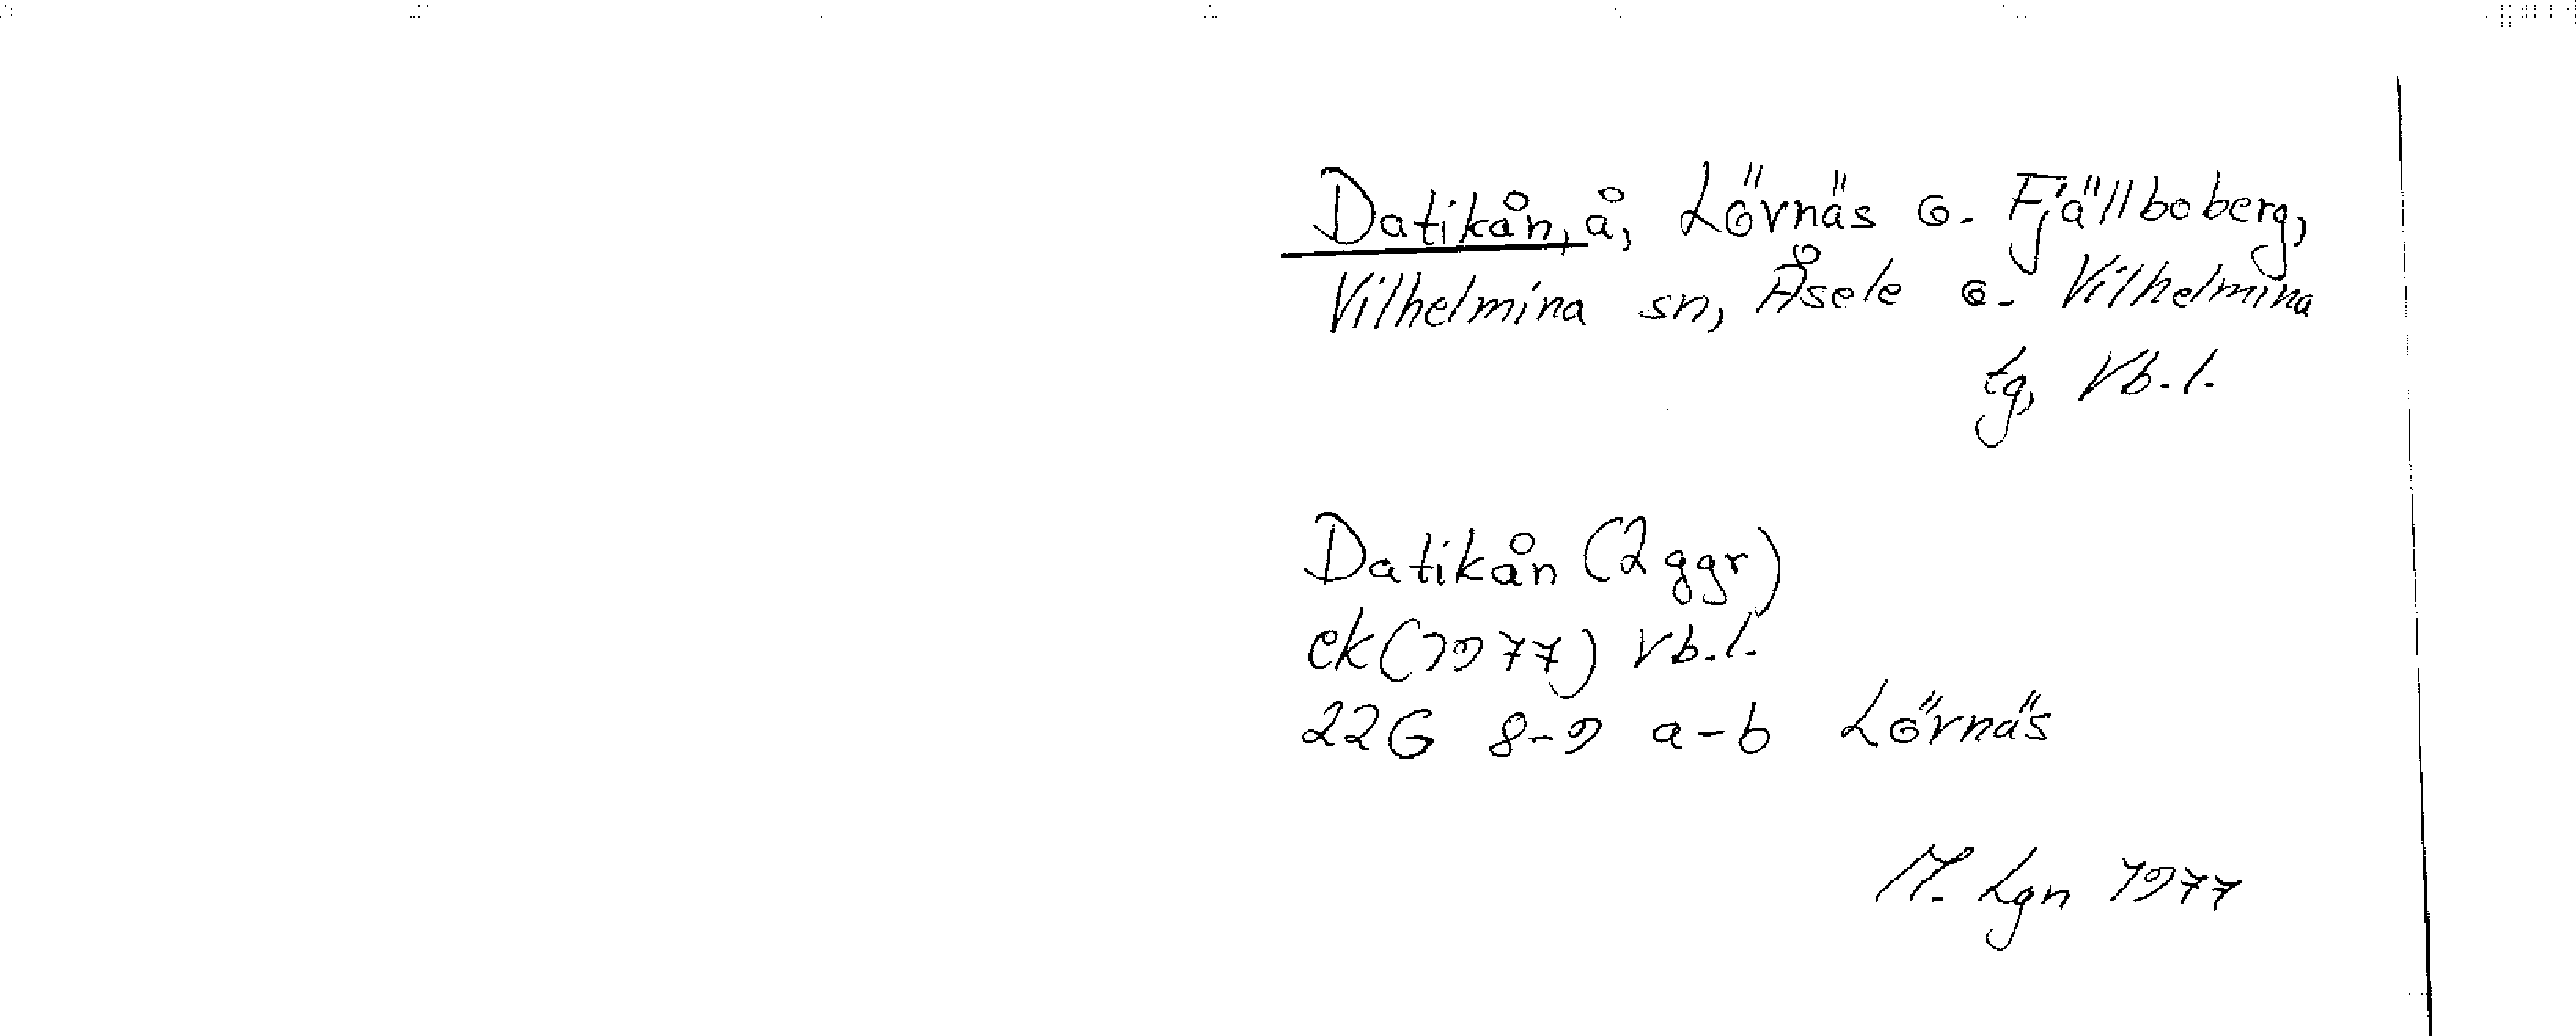 Datikån, å, Lövnäs o. Fjällboberg,
Vilhelmina sn, Åsele o. Vilhelmina
tg, Vb. l.
Datikån (2 ggr)
ek (1977) Vb. l.
22G 8-9 a-b Lövnäs
M. Lgn 1977